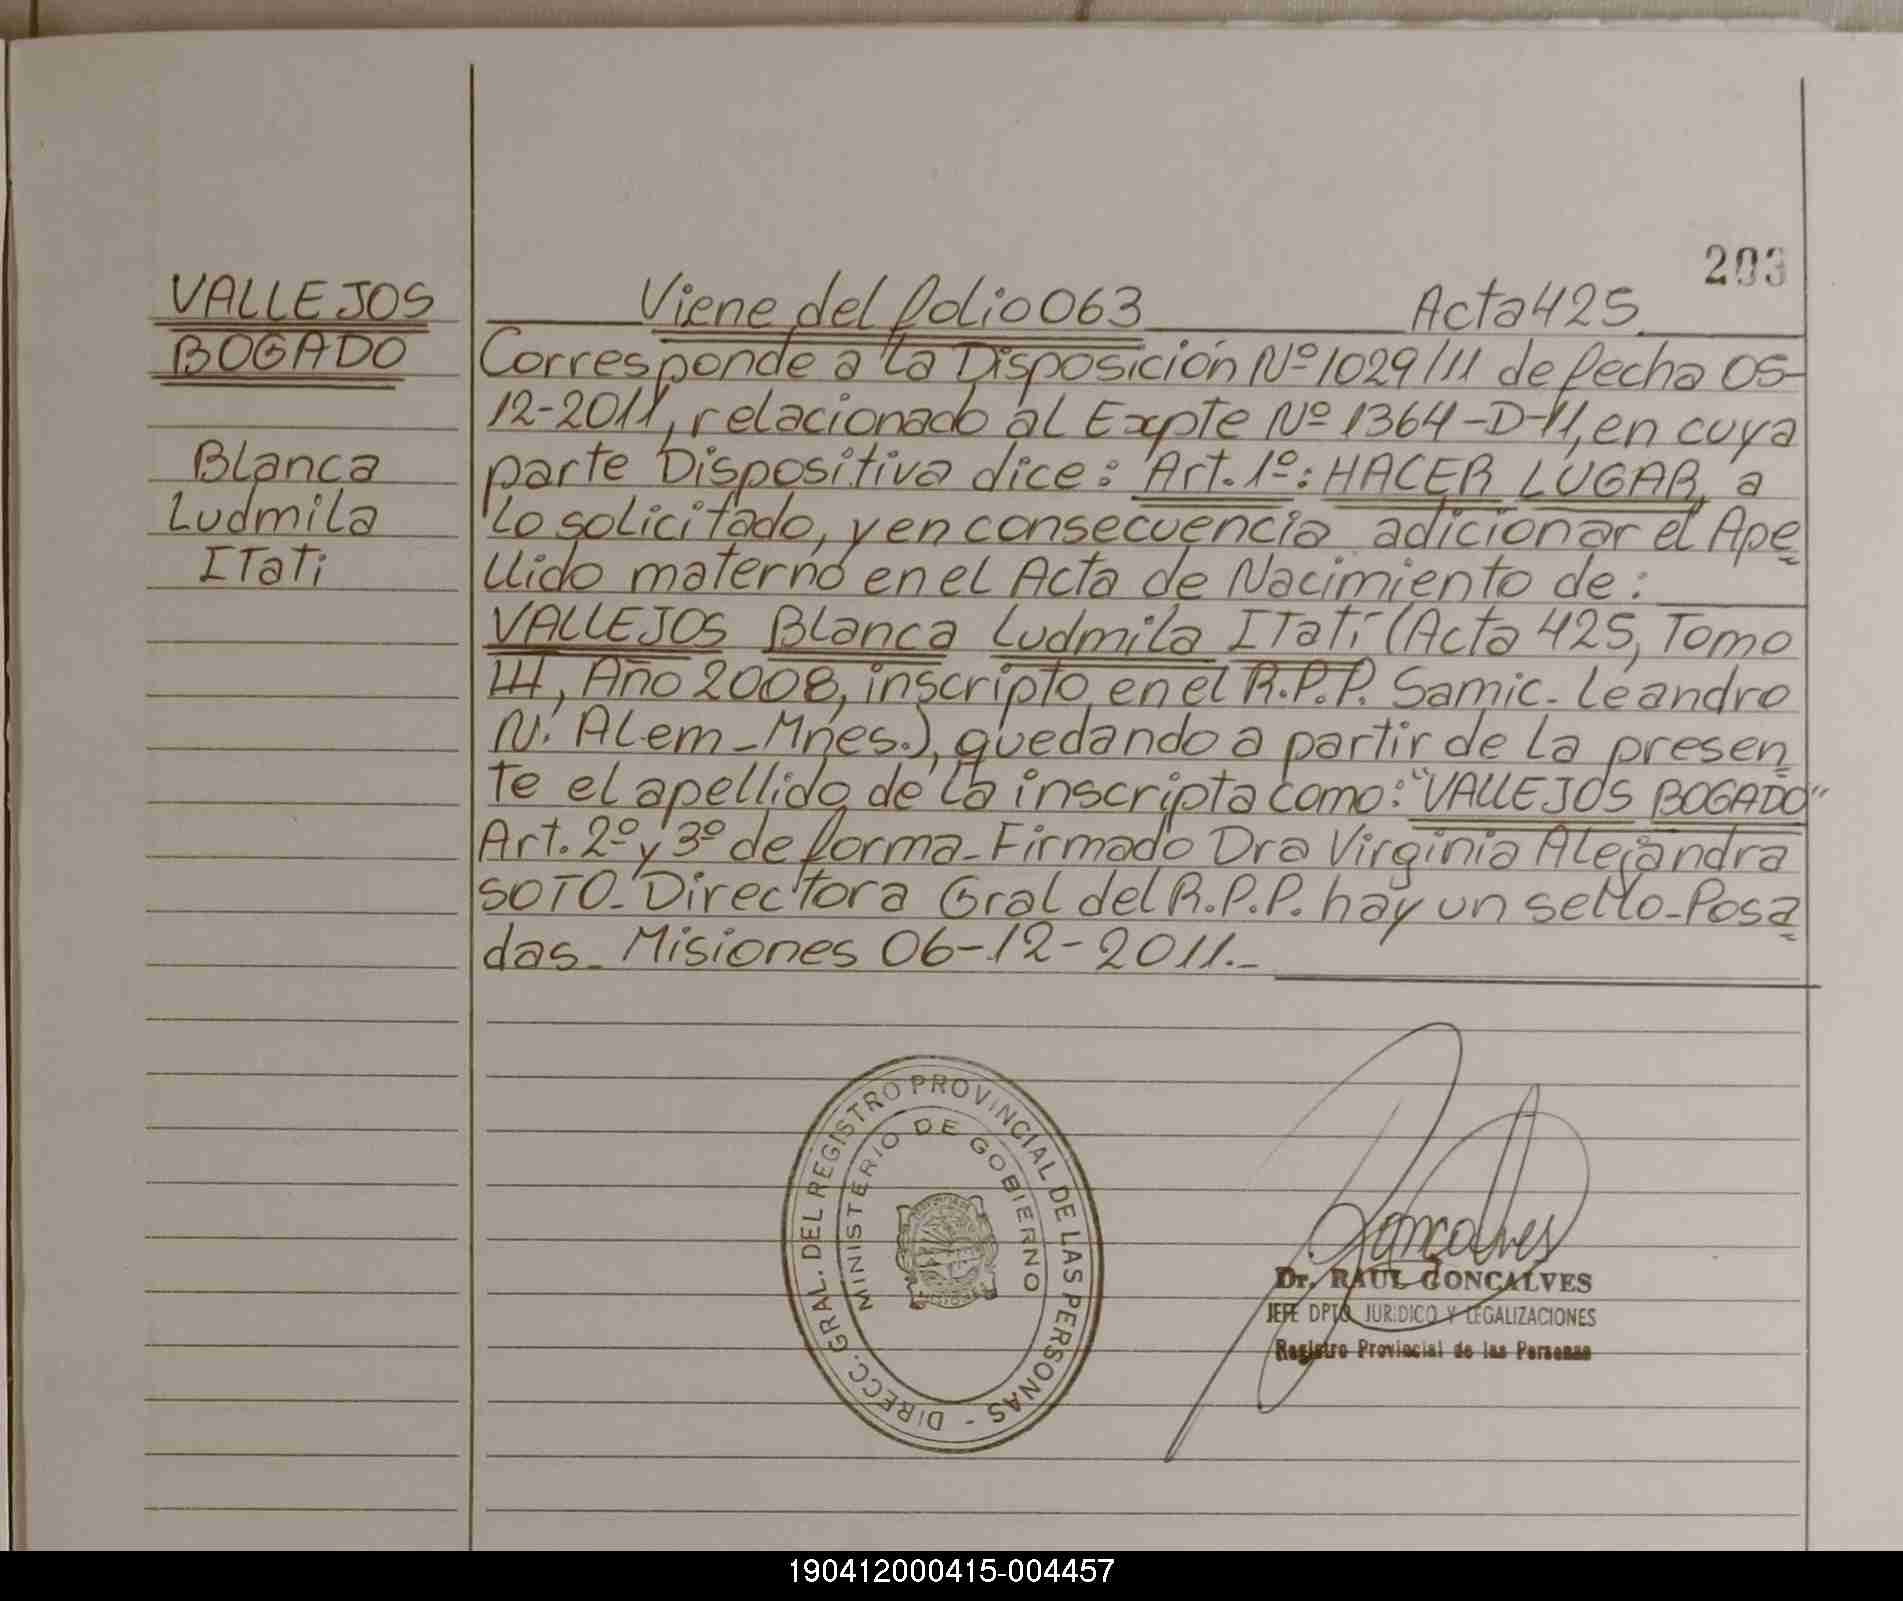 203
VALLEJOS
BOGADO
Blanca
Ludmila
ITati
Viene del folio 063 Acta 425
Corresponde a la Disposición Nº 1029/11 de fecha 05-
12-2011, relacionado al Expte Nº 1364-D-11, en cuya
parte Dispositiva dice: Art. 1º: HACER LUGAR, a
lo solicitado, y en consecuencia adicionar el Ape=
llido materno en el Acta de Nacimiento de:
VALLEJOS Blanca Ludmila ITatí (Acta 425, Tomo
III, Año 2008, inscripto en el R.P.P. Samic- Leandro
N. Alem - Mnes.), quedando a partir de la presen=
te el apellido de la inscripta como: "VALLEJOS BOGADO"
Art. 2º y 3º de forma- Firmado Dra Virginia Alejandra
SOTO- Directora Gral del R.P.P. hay un sello- Posa=
das- Misiones 06-12-2011.-
DIRECC. GRAL. DEL REGISTRO PROVINCIAL DE LAS PERSONAS -
MINISTERIO DE GOBIERNO
Goncalves
Dr. RAUL GONCALVES
JEFE DPTO. JURIDICO Y LEGALIZACIONES
Registro Provincial de las Personas
190412000415-004457